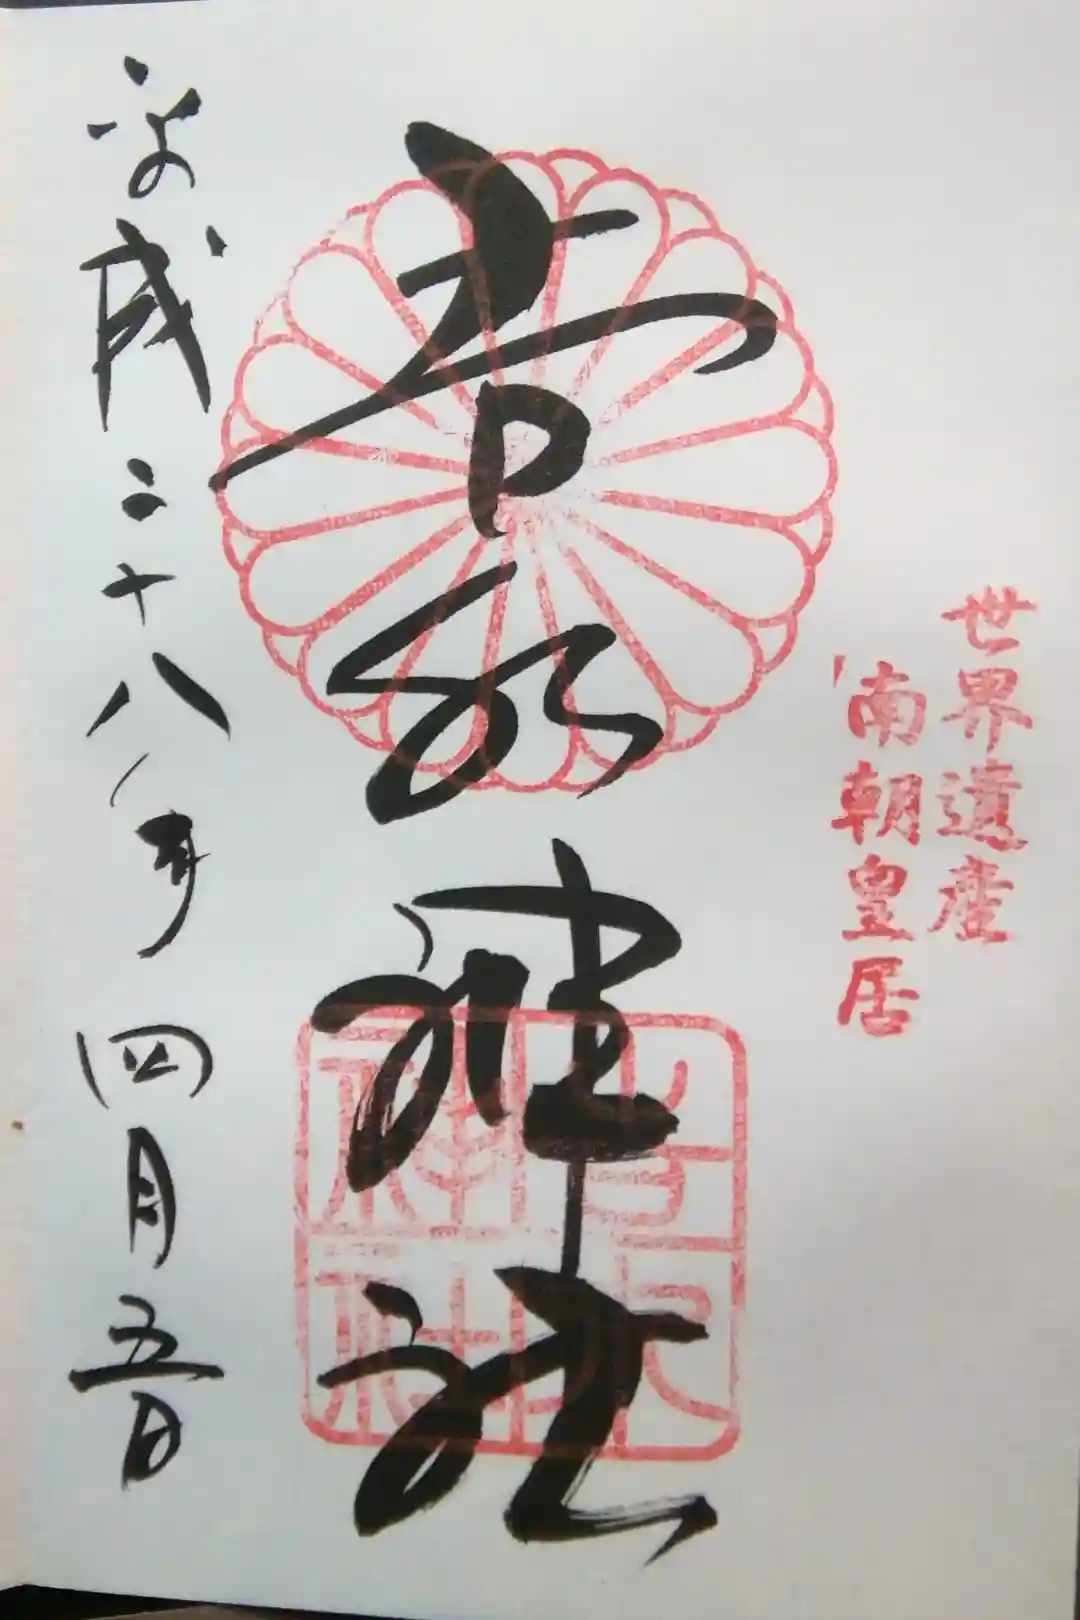 世界遺産
南朝皇居
吉水神社
吉水
神社
平成二十八年四月五日